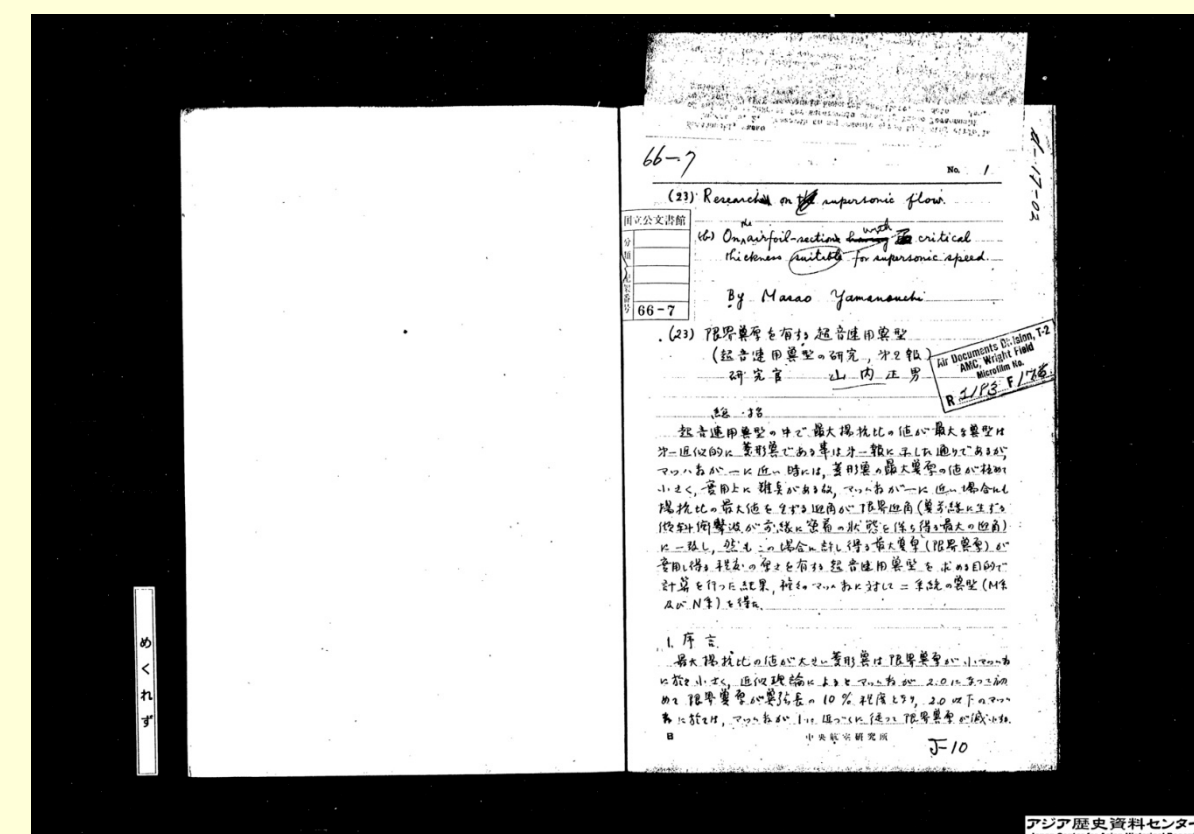 66-7
No. 1
(23) Research on supersonic flow.
(b) On the airfoil-section having with critical
thickness suitable for supersonic speed.
By Masao Yamanouchi
d-17-02
国立公文書館
分
類
番号
66-7
(23) 限界翼厚を有する超音速用翼型
(超音速用翼型の研究, 第2報)
研究官 山内正男
Air Documents Division, T-2
AMC, Wright Field
Microfilm No.
R 2183 F
総括
超音速用翼型の中で最大揚抗比の値が最大な翼型は
第一近似的に菱形翼である事は第一報に示した通りであるが,
マッハ数が一に近い時には, 菱形翼の最大翼厚の値が極めて
小さく, 実用上に難点がある故, マッハ数が一に近い場合にも
揚抗比の最大値を生ずる迎角が限界迎角(翼前縁に生ずる
傾斜衝撃波が前縁に密着の状態を保ち得る最大の迎角)
に一致し, 然もこの場合に許し得る最大翼厚(限界翼厚)が
実用し得る程度の厚さを有する超音速用翼型を求める目的で
計算を行った結果, 種々のマッハ数に対して二系統の翼型(M系
及びN系)を得た.
1. 序言
最大揚抗比の値が大きい菱形翼は限界翼厚が小マッハ数
に於て小さく, 近似理論によるとマッハ数が 2.0 になって初
めて限界翼厚が翼弦長の 10% 程度となり, 2.0 以下のマッハ
数に於ては, マッハ数が 1 に近づくに従って限界翼厚が減少する.
B
中央航空研究所
J-10
めくれず
アジア歴史資料センター